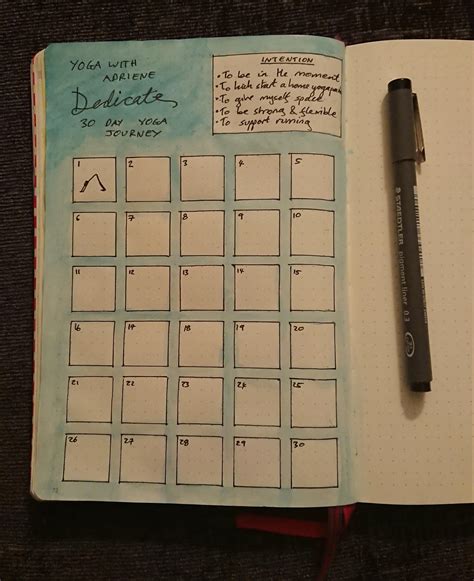 YOGA WITH
ADRIENE
Dedicate
30 DAY YOGA
JOURNEY
INTENTION
• To be in the moment
• To kick start a home yoga
• To give myself space
• To be strong & flexible
• To support running
1 2 3 4 5
6 7 8 9 10
11 12 13 14 15
16 17 18 19 20
21 22 23 24 25
26 27 28 29 30
STAEDTLER
pigment liner 0.3